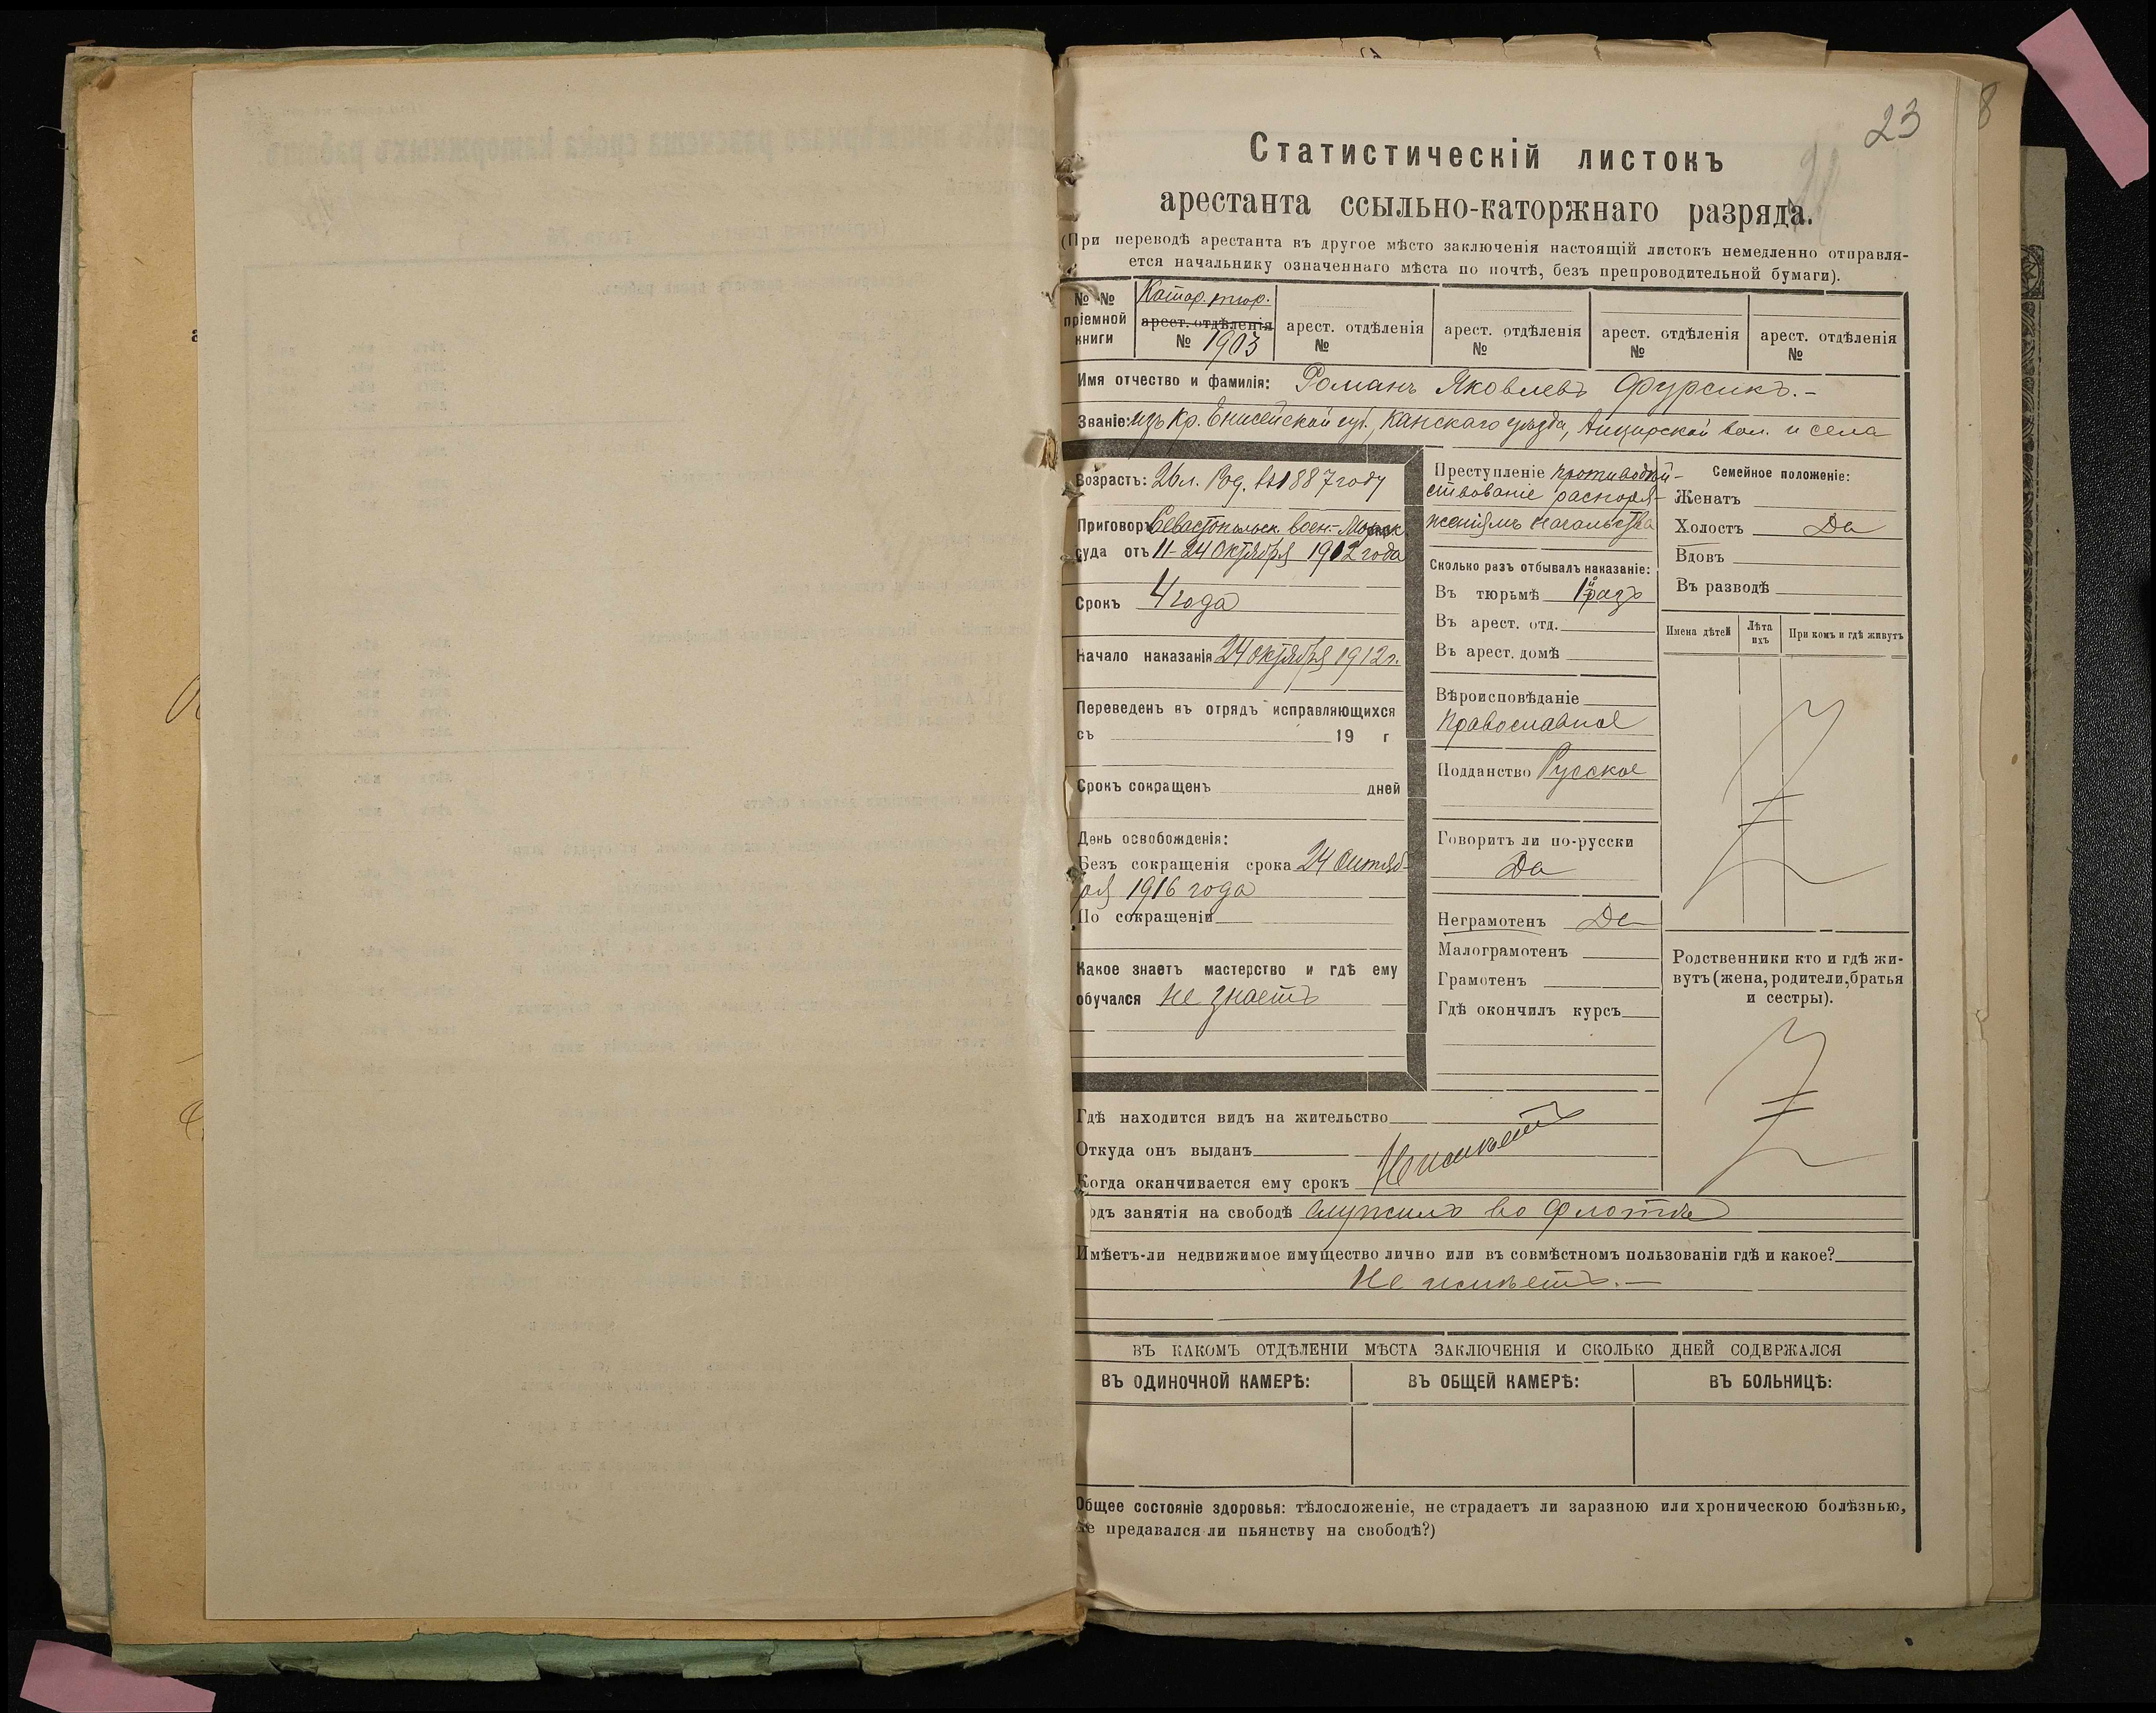 23
8
Статистическій листокъ
арестанта ссыльно-каторжнаго разряда.
(При переводѣ арестанта въ другое мѣсто заключенія настоящій листокъ немедленно отправля-
ется начальнику означеннаго мѣста по почтѣ, безъ препроводительной бумаги).
№ № пріемной книги
Катор. тюр.
арест. отдѣленія
№ 1903
арест. отдѣленія
№
арест. отдѣленія
№
арест. отдѣленія
№
арест. отдѣленія
№
Имя отчество и фамилія: Романъ Яковлевъ Фурсикъ.-
Званіе: изъ кр. Енисейской губ., Канскаго уѣзда, вол. и села
Возрастъ: 26 л. Род. въ 1887 году
Приговоръ Севастопольск. Воен.-Морск.
суда отъ 11-24 Октября 1912 года
Срокъ 4 года
Начало наказанія 24 октября 1912 г.
Переведенъ въ отрядъ исправляющихся
съ 19 г
Срокъ сокращенъ дней
День освобожденія:
Безъ сокращенія срока 24 Октяб-
ря 1916 года
По сокращеніи
Какое знаетъ мастерство и гдѣ ему
обучался не знаетъ
Преступленіе противодѣй-
ствованіе распоря-
женіямъ начальства
Сколько разъ отбывалъ наказаніе:
Въ тюрьмѣ 1й разъ
Въ арест. отд.
Въ арест. домѣ
Вѣроисповѣданіе
Православное
Подданство Русское
Говоритъ ли по-русски
Да
Неграмотенъ Да
Малограмотенъ
Грамотенъ
Гдѣ окончилъ курсъ
Семейное положеніе:
Женатъ
Холостъ Да
Вдовъ
Въ разводѣ
Имена дѣтей
Лѣта ихъ
При комъ и гдѣ живутъ
Родственники кто и гдѣ жи-
вутъ (жена, родители, братья
и сестры).
Гдѣ находится видъ на жительство
Откуда онъ выданъ
Когда оканчивается ему срокъ
Не имѣетъ
одъ занятія на свободѣ Служилъ во флотѣ
Имѣетъ-ли недвижимое имущество лично или въ совмѣстномъ пользованіи гдѣ и какое?
Не имѣетъ.-
ВЪ КАКОМЪ ОТДѢЛЕНІИ МѢСТА ЗАКЛЮЧЕНІЯ И СКОЛЬКО ДНЕЙ СОДЕРЖАЛСЯ
ВЪ ОДИНОЧНОЙ КАМЕРѢ:
ВЪ ОБЩЕЙ КАМЕРѢ:
ВЪ БОЛЬНИЦѢ:
Общее состояніе здоровья: тѣлосложеніе, не страдаетъ ли заразною или хроническою болѣзнью,
не предавался ли пьянству на свободѣ?)